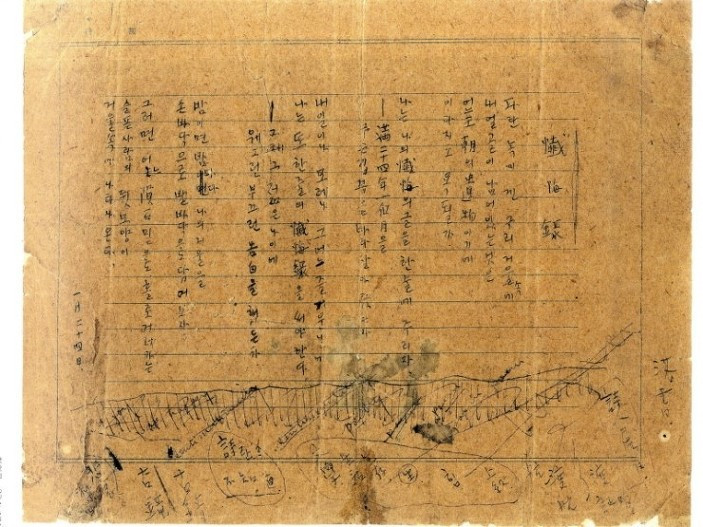 懺悔錄
파란 녹이 낀 구리 거울속에
내 얼골이 남어있는것은
어느 王朝의 遺物이기에
이다지도 욕될까.
나는 나의 懺悔의 글을 한줄에 주리자.
— 滿二十四年一個月을
무슨 깁븜을 바라 살아 왔든가
내일이나 모레나 그 어느 즐거운 날에
나는 또 한줄의 懺悔錄을 써야한다.
— 그때 그 젊은 나이에
웨그런 부끄런 告白을 했든가
밤이면 밤마다 나의 거울을
손바닥으로 발바닥으로 닦어보자
그러면 어느 隕石밑으로 홀로거러가는
슬픈사람의 뒷모양이
거울속에 나타나온다.
一月二十四日
落書
詩란